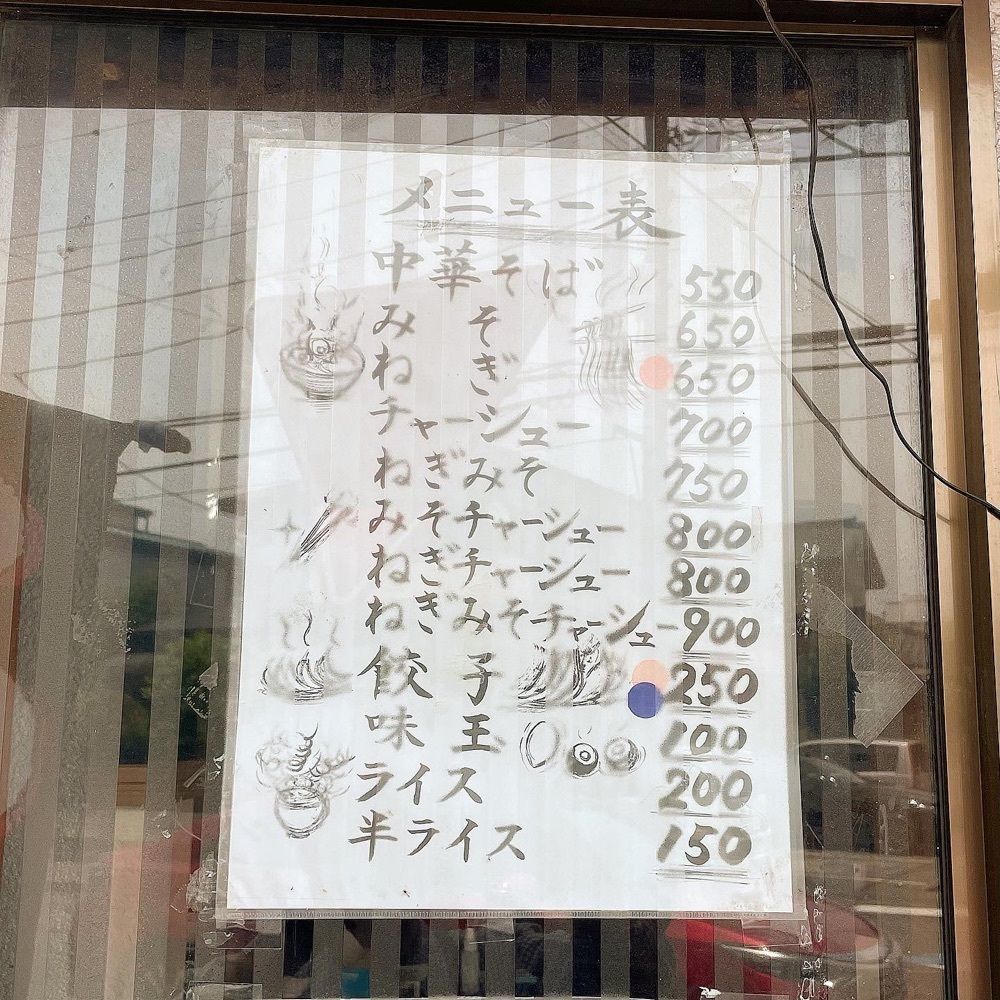 メニュー表
中華そば 550
みそ 650
ねぎ 650
チャーシュー 700
ねぎみそ 750
みそチャーシュー 800
ねぎチャーシュー 800
ねぎみそチャーシュー 900
餃子 250
味玉 100
ライス 200
半ライス 150